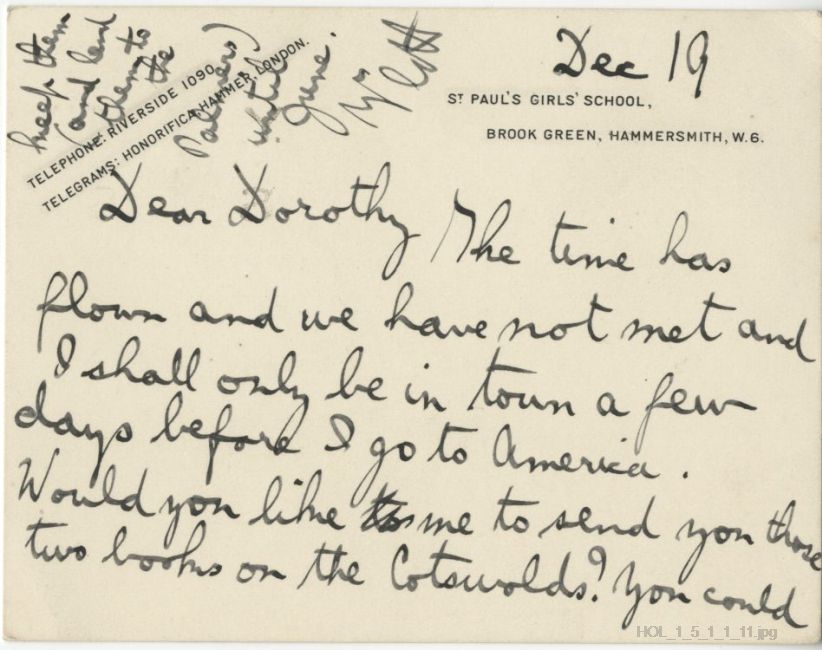 Dec 19
ST PAUL'S GIRLS' SCHOOL,
BROOK GREEN, HAMMERSMITH, W.6.
TELEPHONE: RIVERSIDE 1090.
TELEGRAMS: HONORIFICA, HAMMER, LONDON.
Dear Dorothy The time has
flown and we have not met and
I shall only be in town a few
days before I go to America.
Would you like me to send you those
two books on the Cotswolds? You could
keep them
(and lend
them to
the
Palmers)
until
June.
HOL_1_5_1_1_11.jpg